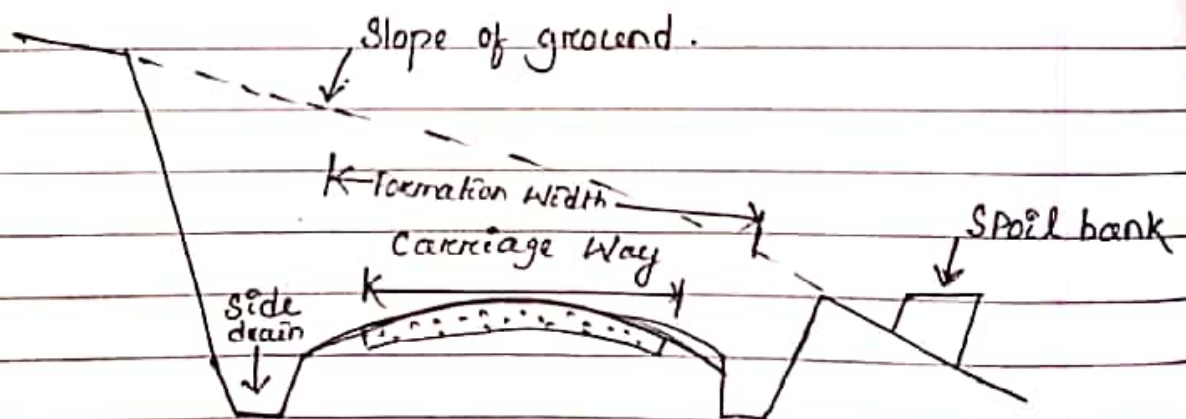 Slope of ground.
Formation Width
Carriage Way
Spoil bank
Side
drain